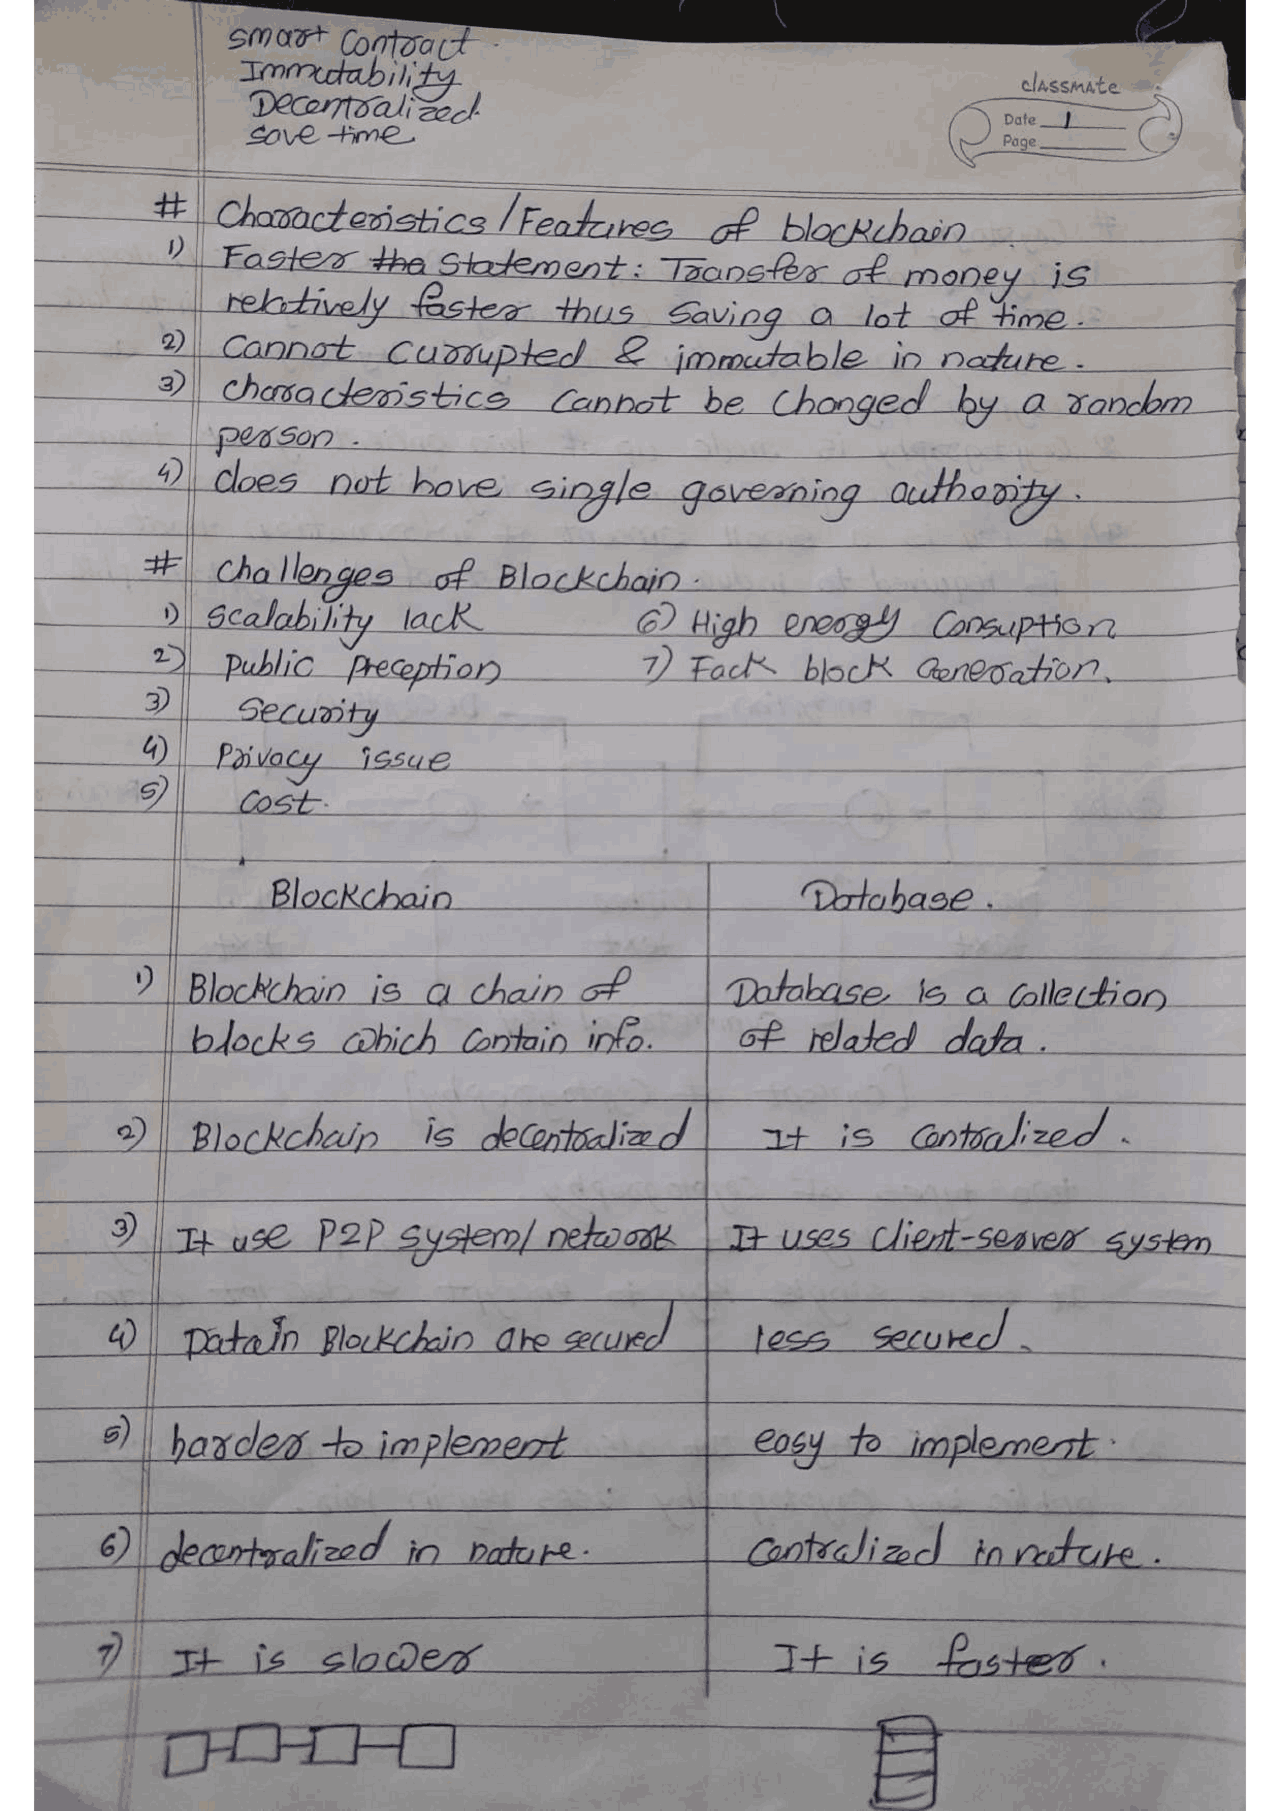 smart Contract
Immutability
Decentralized
save time
classmate
Date 1
Page
# Characteristics/Features of blockchain
1) Faster the Statement: Transfer of money is
relatively faster thus Saving a lot of time.
2) Cannot Currupted & immutable in nature.
3) characteristics Cannot be Changed by a random
person.
4) does not have single governing authority.
# Challenges of Blockchain.
1) Scalability lack
2) public preception
3) Security
4) Privacy issue
5) Cost.
6) High energy Consuption
7) Fack block Generation.
Blockchain
Database.
1) Blockchain is a chain of
blocks which Contain info.
Database is a Collection
of related data.
2) Blockchain is decentralized
It is Centralized.
3) It use P2P system/network
It uses Client-server system
4) Data in Blockchain are secured
less secured.
5) harder to implement
easy to implement.
6) decentralized in nature.
Centralized in nature.
7) It is slower
It is faster.